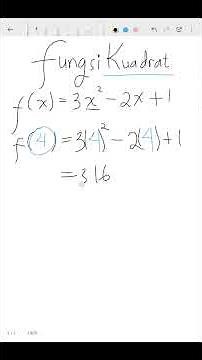 Fungsi Kuadrat
f(x) = 3x² - 2x + 1
f(4) = 3(4)² - 2(4) + 1
= 316